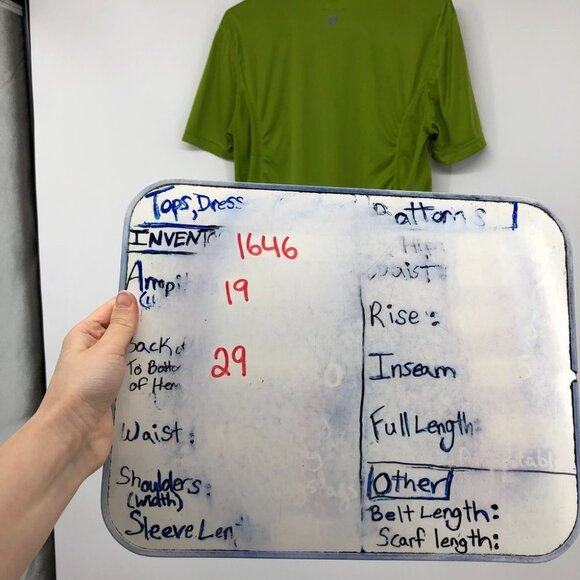 Tops, Dress
INVENT 1646
Armpi 19
Back
To Botto 29
of Hem
Waist:
Shoulders:
(width)
Sleeve Len
Bottoms
Hip
Waist
Rise:
Inseam
Full Length:
Other
Belt Length:
Scarf length: